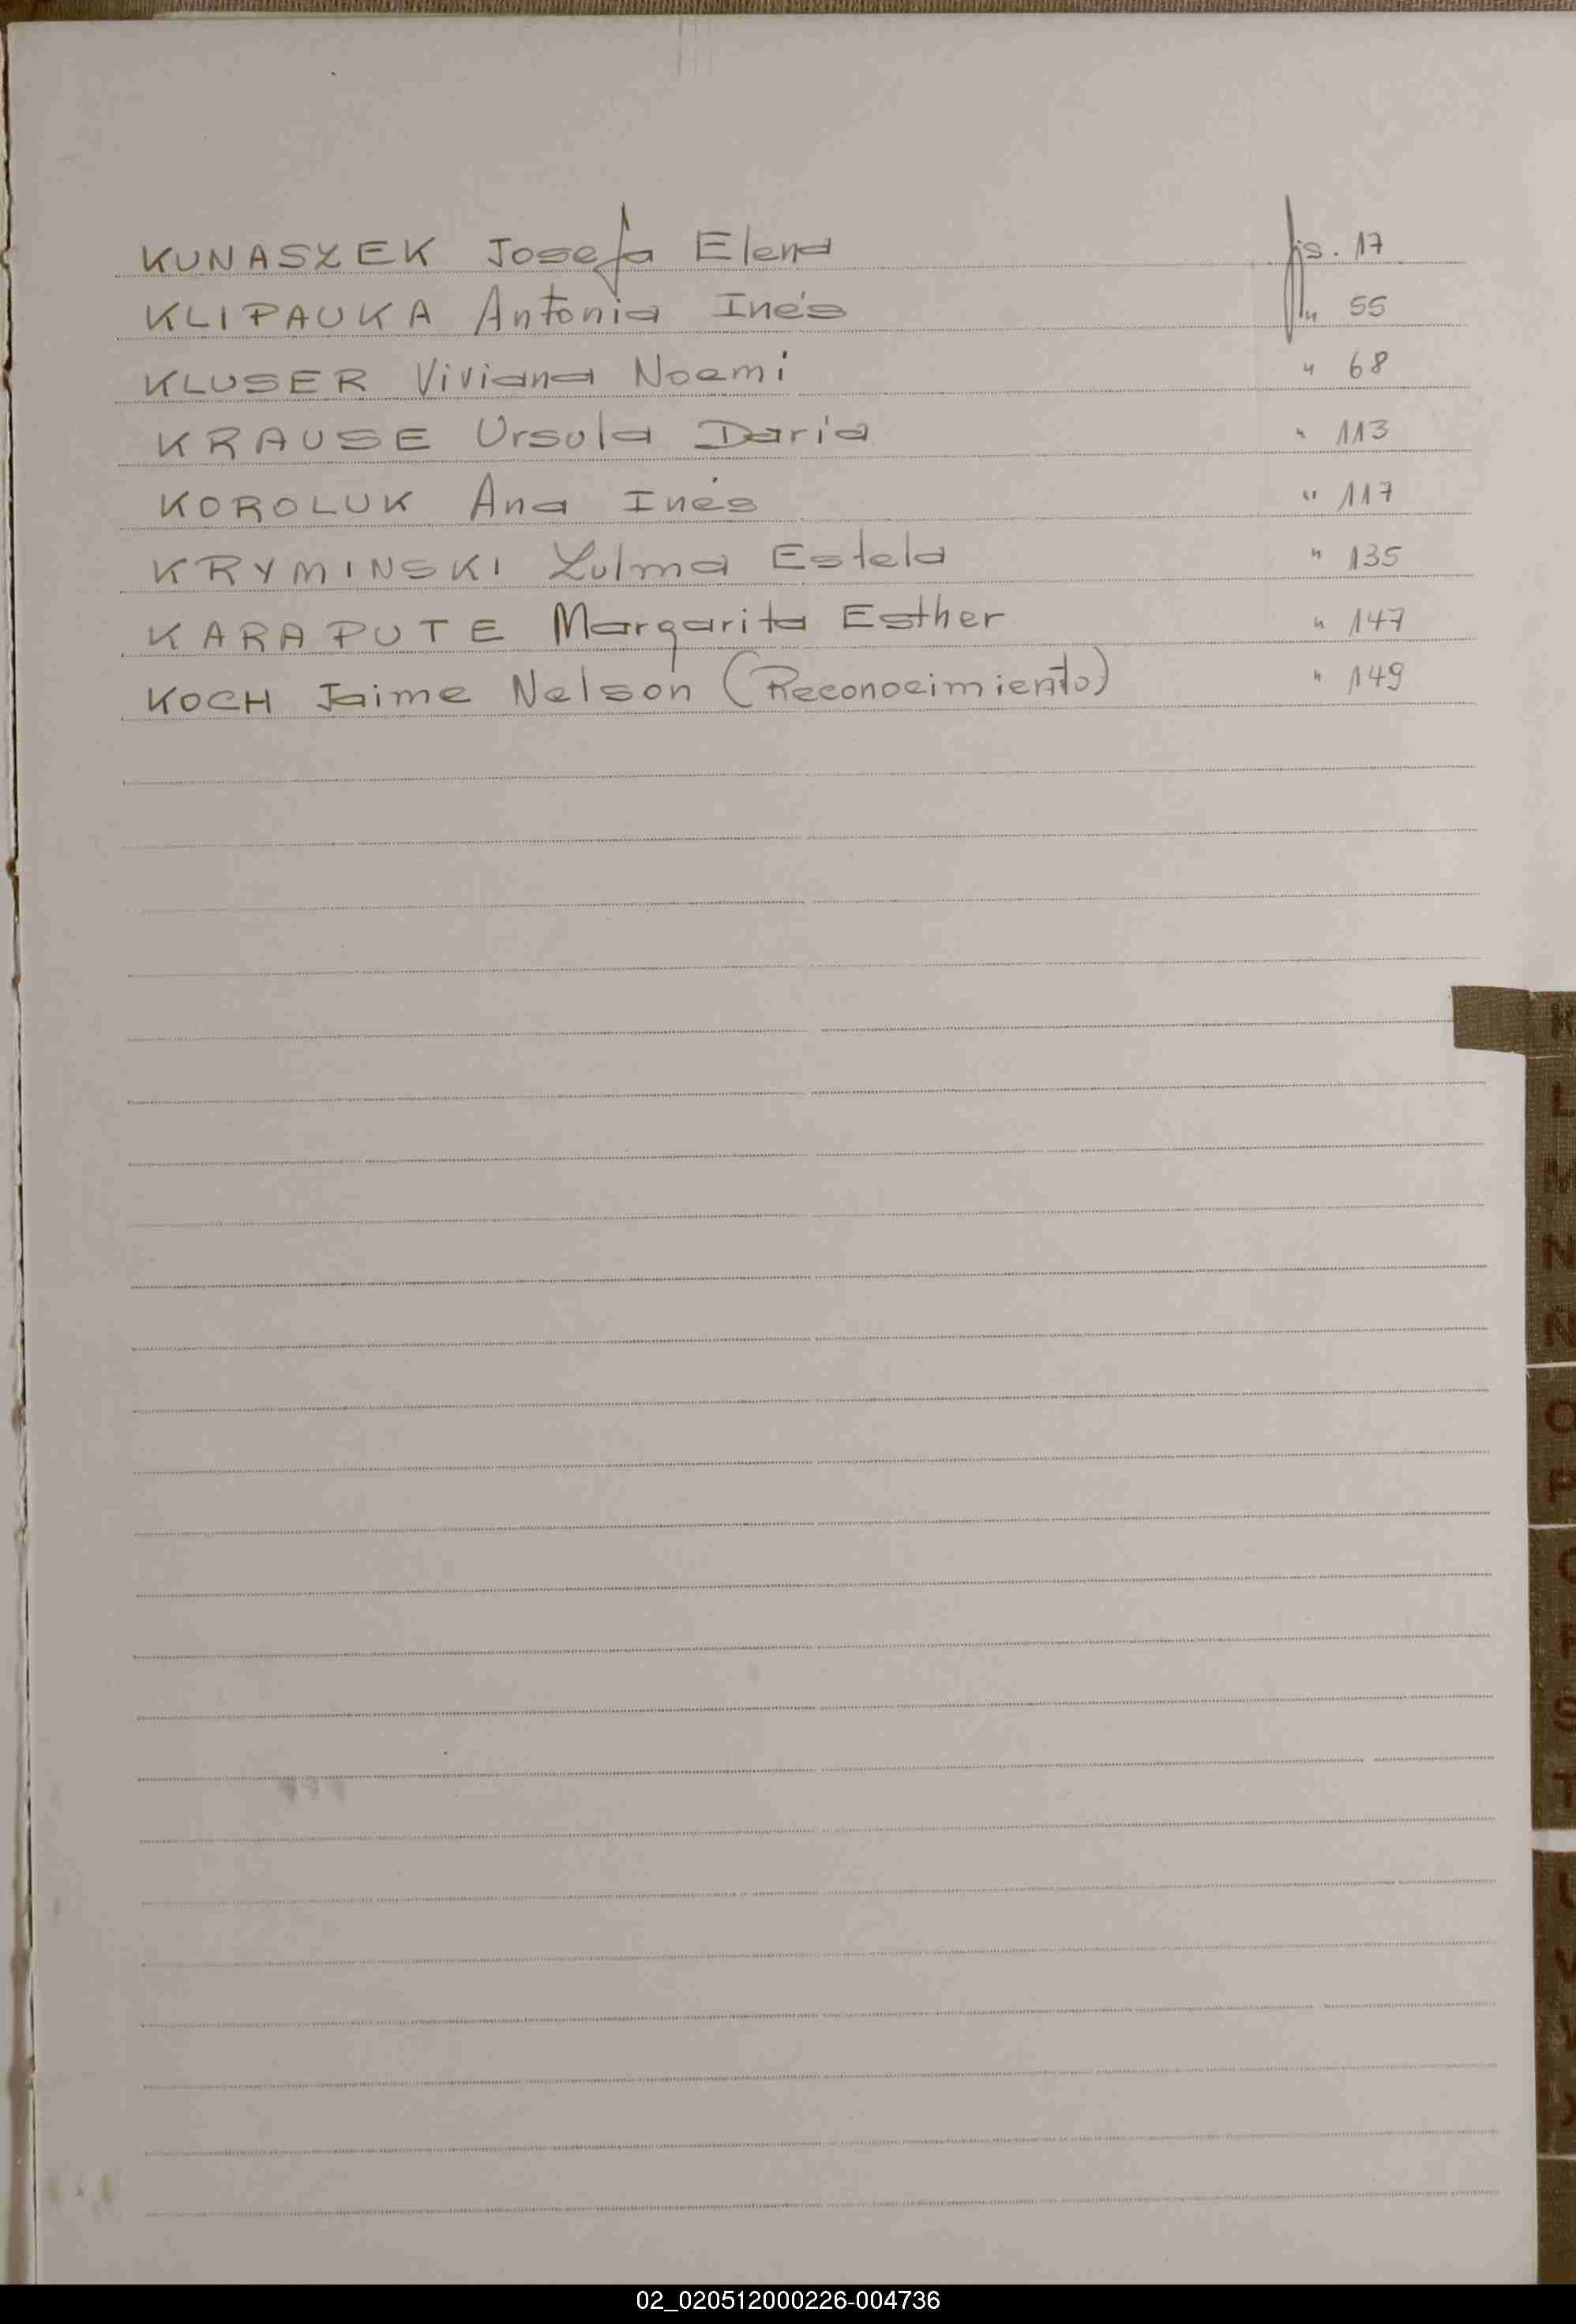 KUNASZEK Josefa Elena fjs. 17
KLIPAUKA Antonia Inés " 55
KLUSER Viviana Noemi " 68
KRAUSE Ursula Daria " 113
KOROLUK Ana Inés " 117
KRYMINSKI Zulma Estela " 135
KARAPUTE Margarita Esther " 147
KOCH Jaime Nelson (Reconocimiento) " 149
K
L
M
N
Ñ
O
P
Q
R
S
T
U
V
02_020512000226-004736